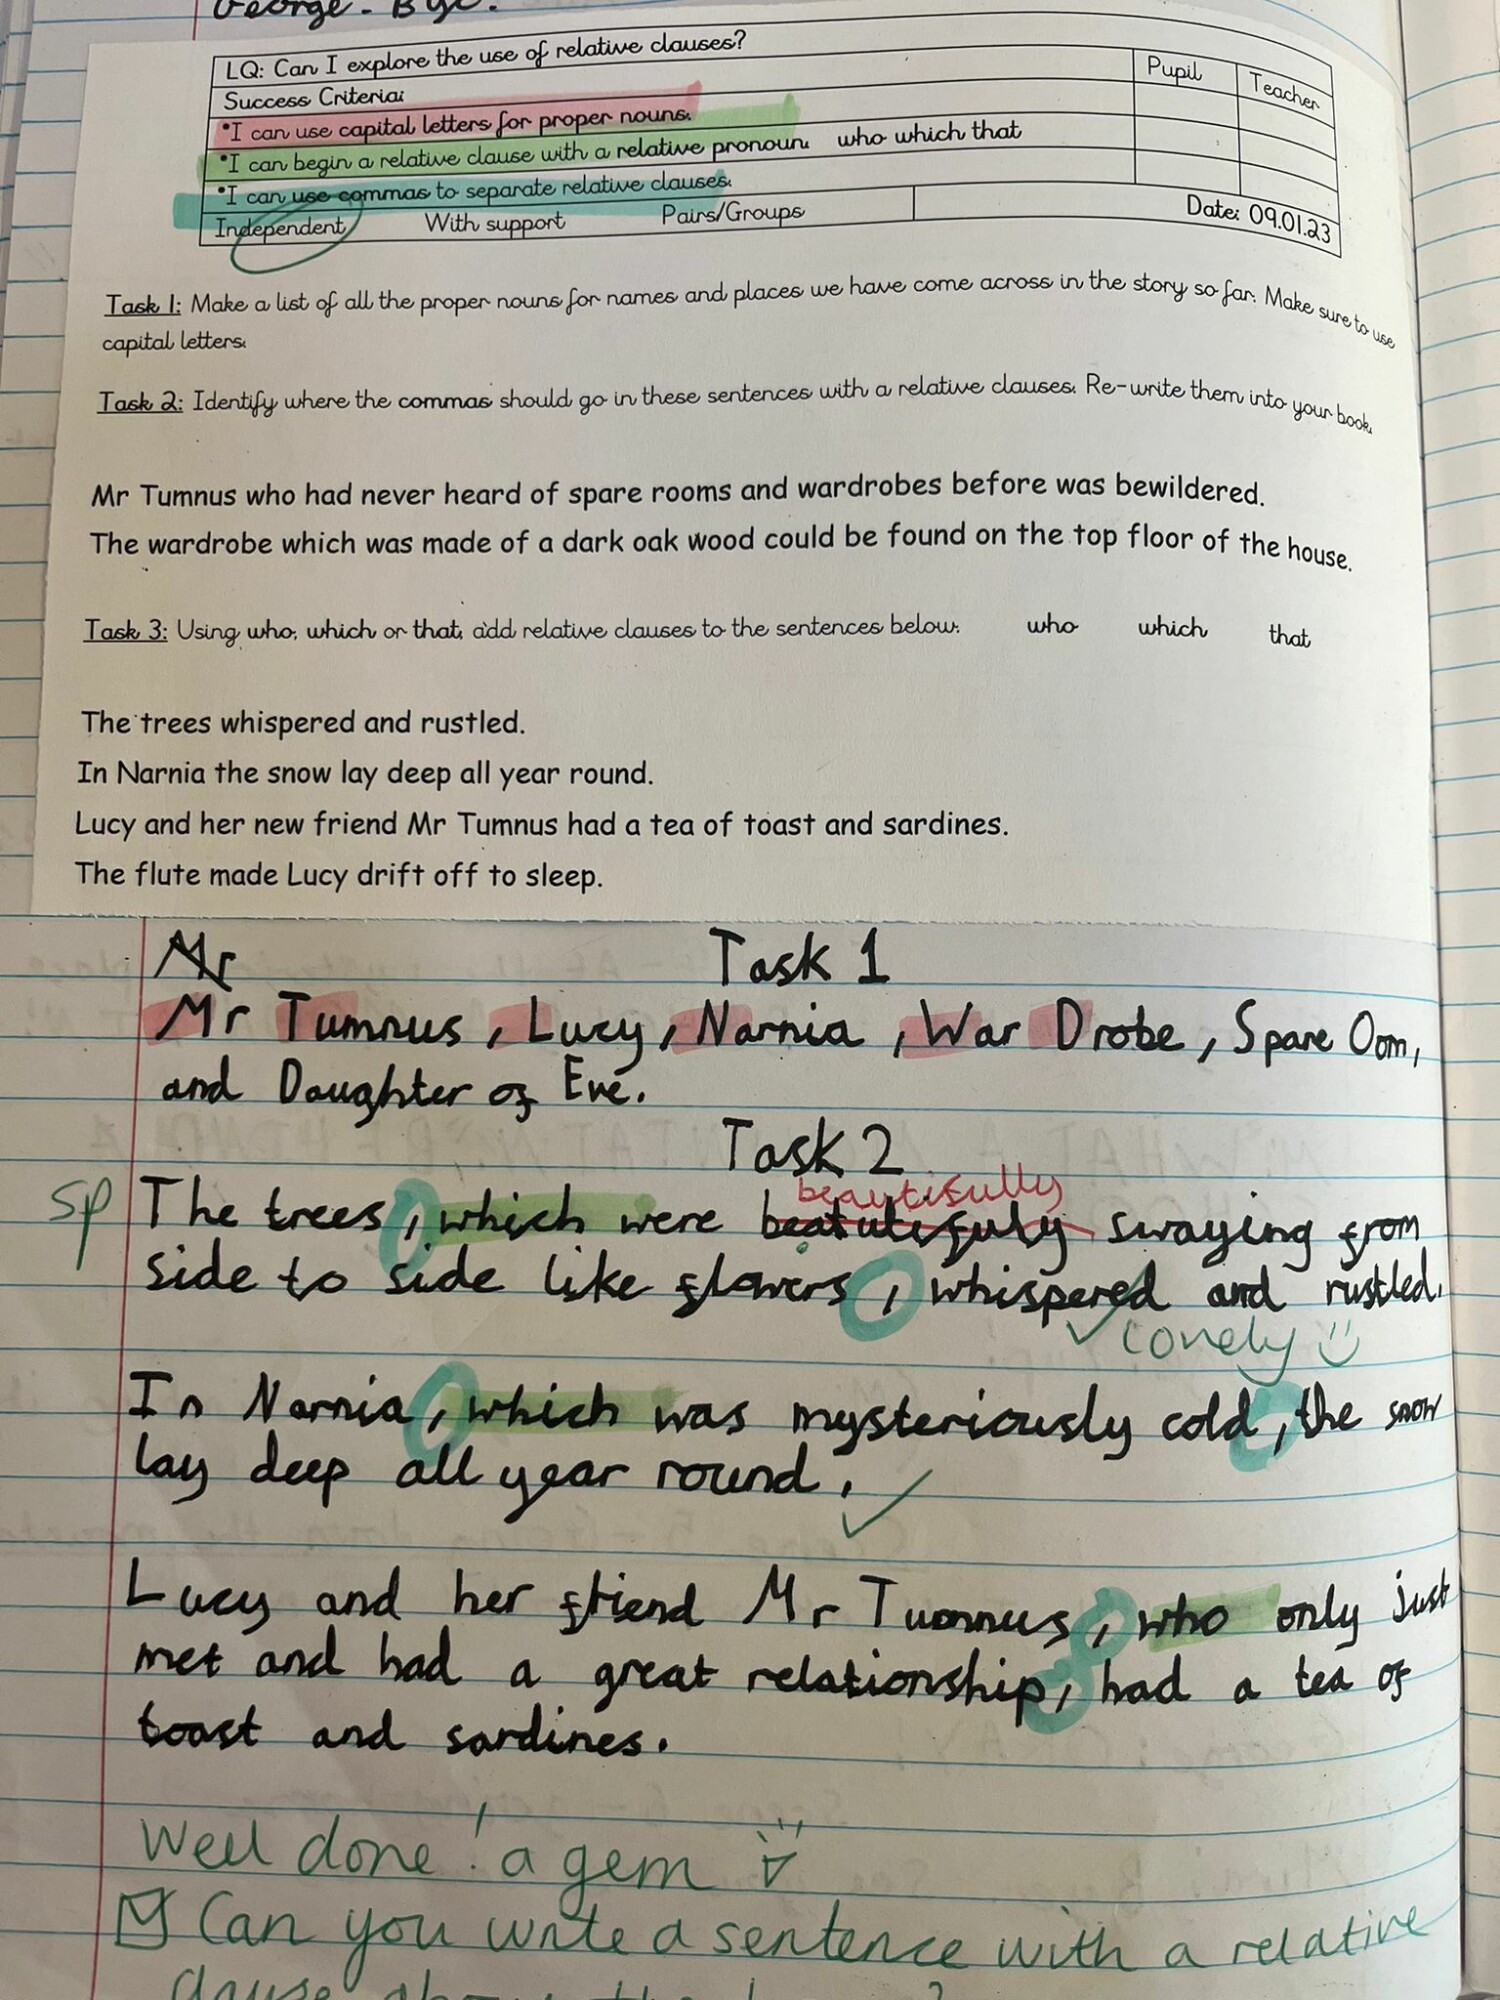 George -
LQ: Can I explore the use of relative clauses?
Success Criteria: Pupil Teacher
•I can use capital letters for proper nouns.
•I can begin a relative clause with a relative pronoun. who which that
•I can use commas to separate relative clauses.
Independent With support Pairs/Groups Date: 09.01.23
Task 1: Make a list of all the proper nouns for names and places we have come across in the story so far. Make sure to use
capital letters.
Task 2: Identify where the commas should go in these sentences with a relative clauses. Re-write them into your book.
Mr Tumnus who had never heard of spare rooms and wardrobes before was bewildered.
The wardrobe which was made of a dark oak wood could be found on the top floor of the house.
Task 3: Using who, which or that, add relative clauses to the sentences below. who which that
The trees whispered and rustled.
In Narnia the snow lay deep all year round.
Lucy and her new friend Mr Tumnus had a tea of toast and sardines.
The flute made Lucy drift off to sleep.
Mr Task 1
Mr Tumnus, Lucy, Narnia, War Drobe, Spare Oom,
and Daughter of Eve.
Task 2
beautifully
sp The trees, which were beatutifuly swaying from
side to side like flowers, whispered and rustled.
Lovely
In Narnia, which was mysteriously cold, the snow
lay deep all year round.
Lucy and her friend Mr Tumnus, who only just
met and had a great relationship, had a tea of
toast and sardines.
Well done! a gem
Can you write a sentence with a relative
clause